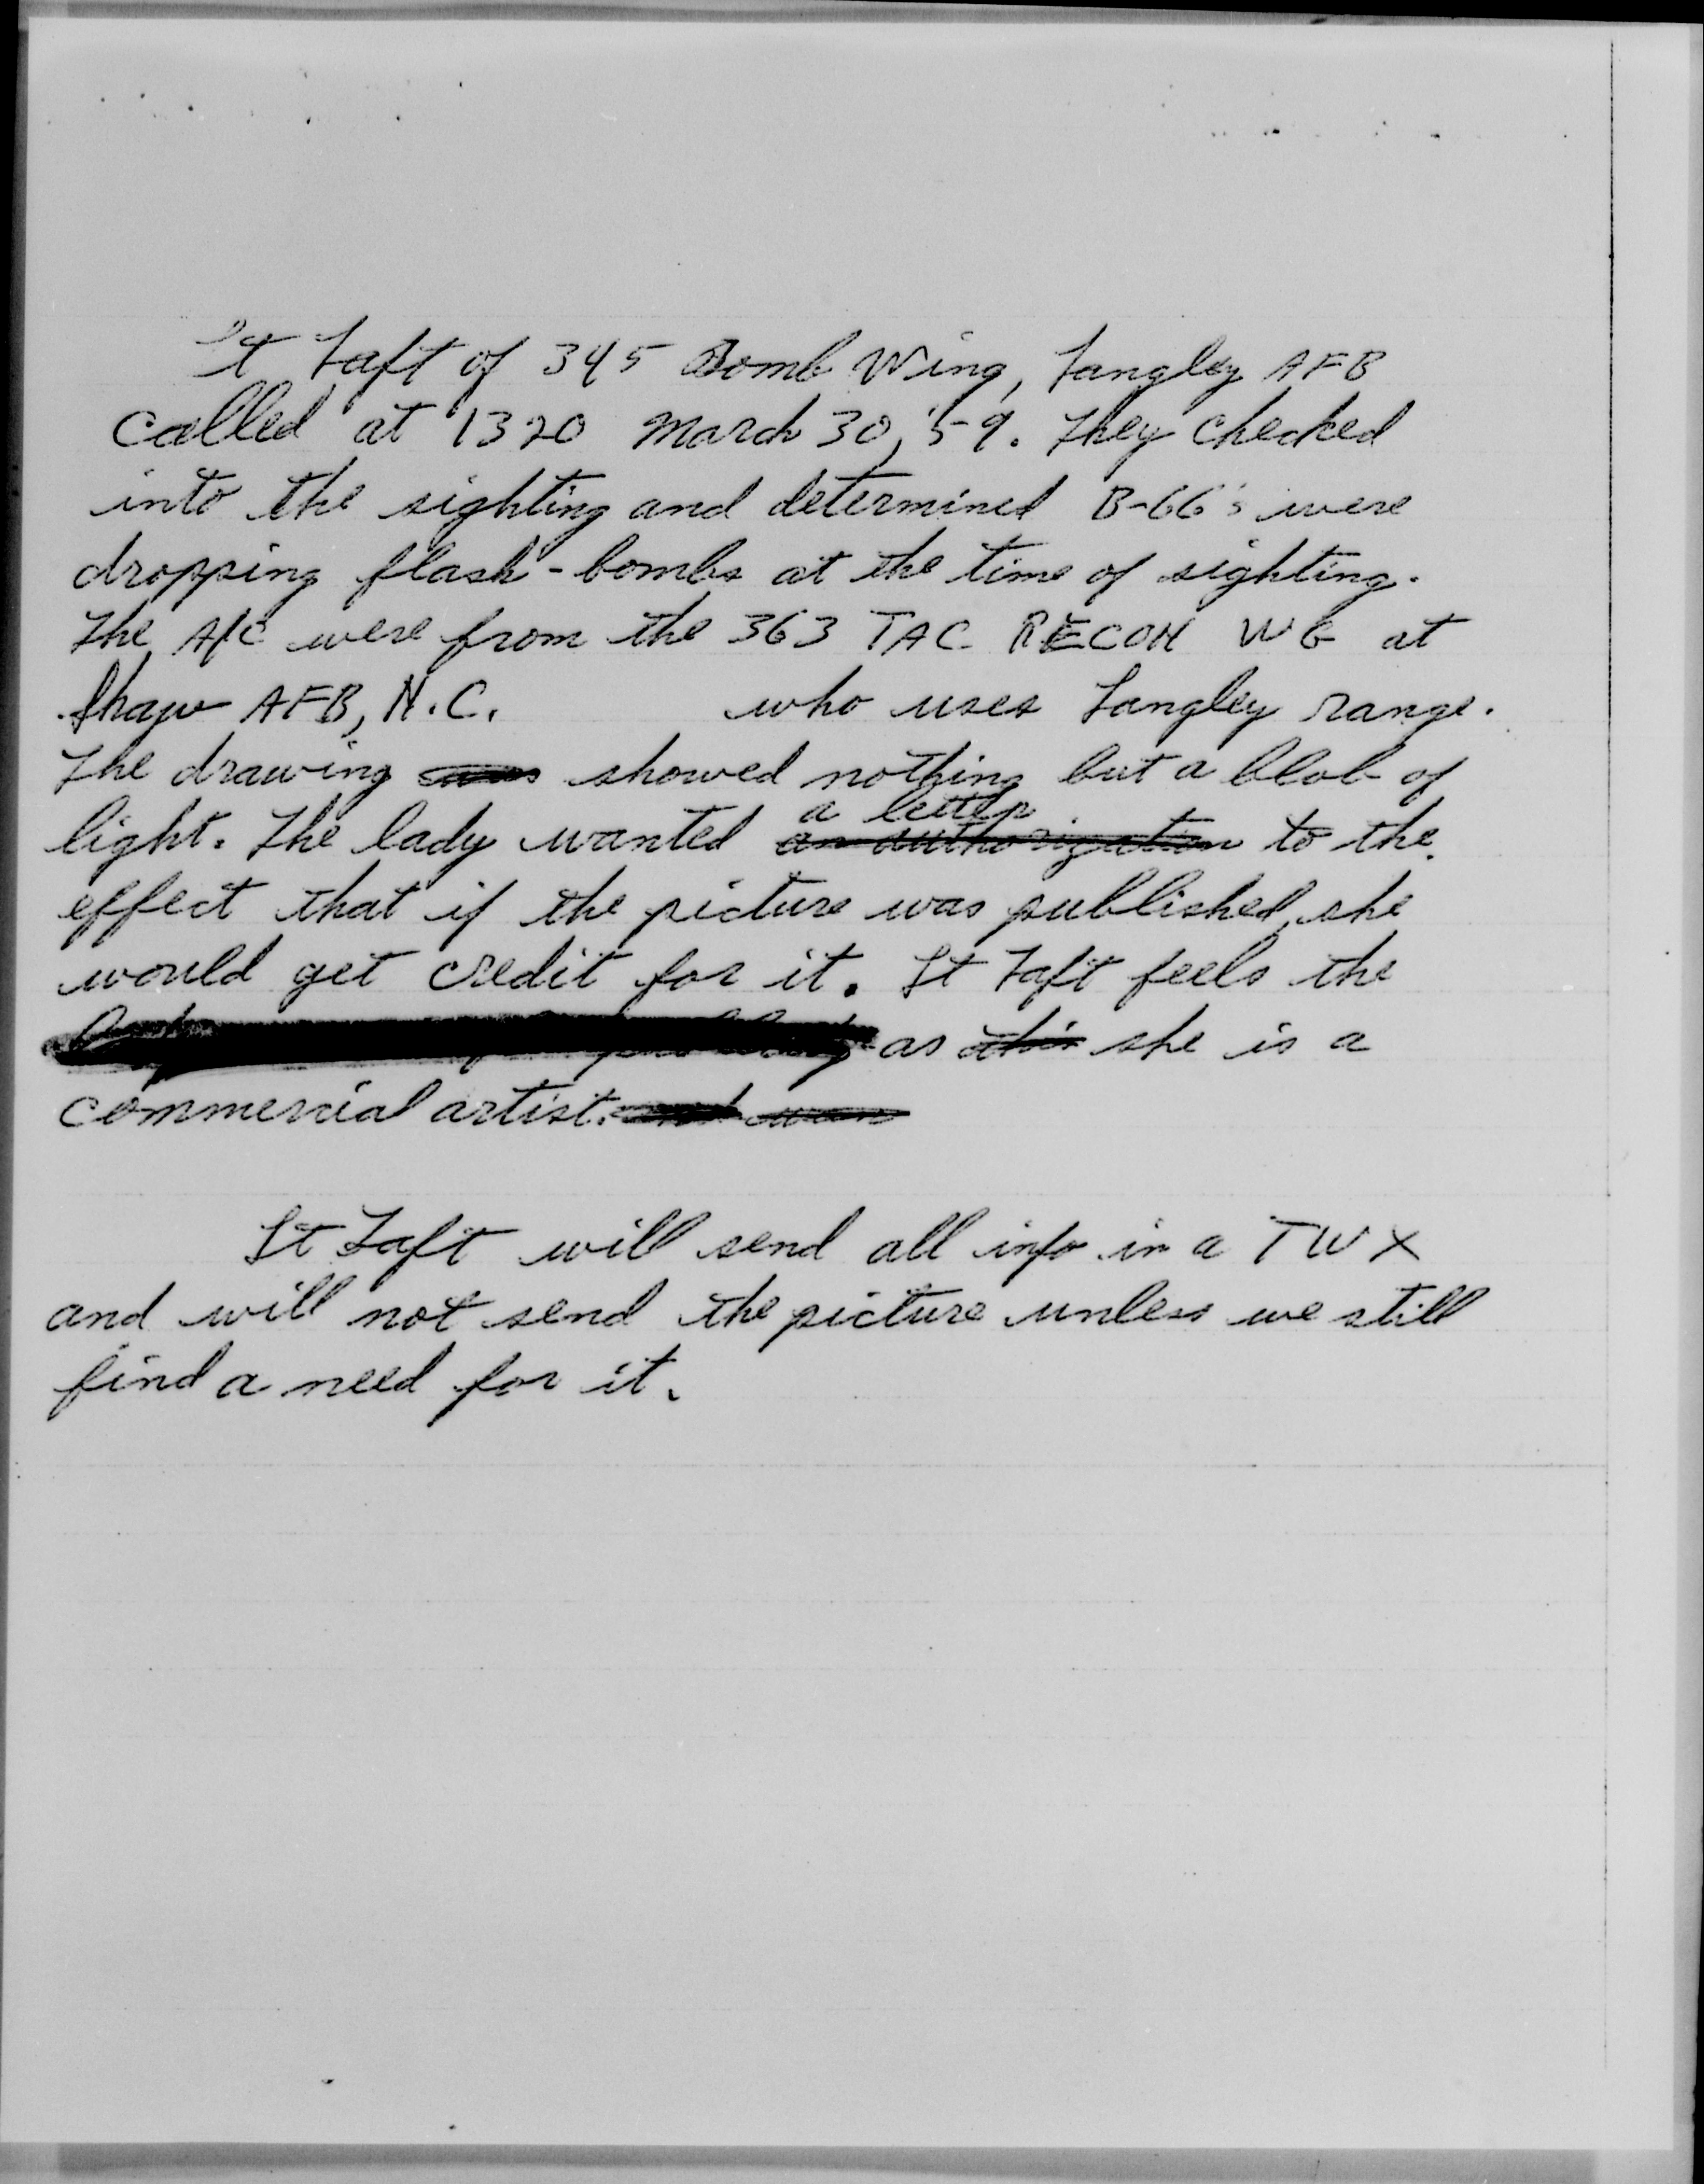 Lt Taft of 345 Bomb Wing, Langley AFB
called at 1320 March 30, '59. They checked
into the sighting and determined B-66's were
dropping flash-bombs at the time of sighting.
The A/C were from the 363 TAC RECON WG at
Shaw AFB, N.C. who uses Langley range.
The drawing showed nothing but a blob of
a letter
light. The lady wanted an authorization to the
effect that if the picture was published, she
would get credit for it. Lt Taft feels the
as this she is a
commercial artist.
Lt Taft will send all info in a TWX
and will not send the picture unless we still
find a need for it.